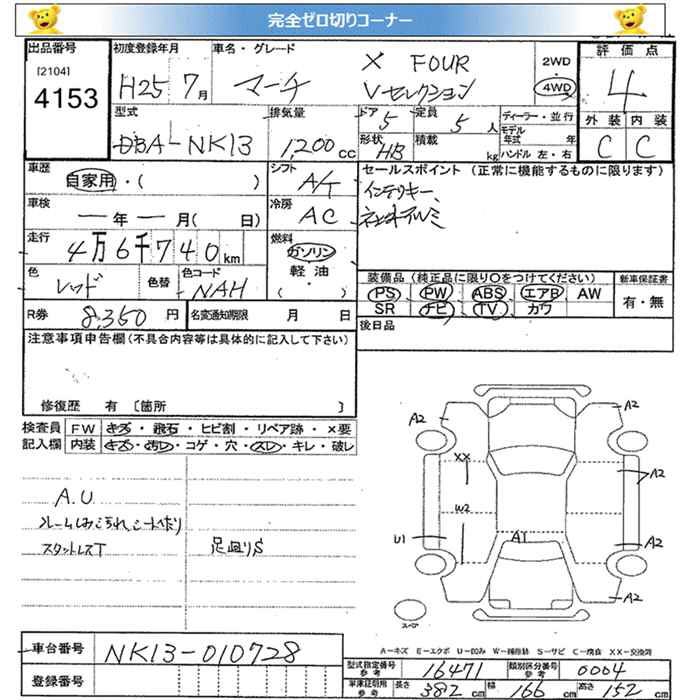 完全ゼロ切りコーナー
出品番号
[2104]
4153
初度登録年月
H25 7月
車名・グレード
マーチ
X FOUR
Vセレクション
2WD
4WD
評価点
4
外装 内装
C C
型式
DBA-NK13
排気量
1,200cc
ドア
5
定員
5人
形状
HB
積載
kg
ディーラー・並行
モデル年式 年
ハンドル 左・右
車歴
自家用・( )
シフト
A/T
セールスポイント (正常に機能するものに限ります)
インテリキー、
車検
年 月( 日)
冷房
AC
走行
4万6千740km
燃料
ガソリン
軽油
( )
色
レッド
色替
色コード
NAH
装備品(純正品に限り○をつけてください)
PS PW ABS エアB AW
SR ナビ TV カワ
新車保証書
有・無
R券
8,350円
名変通知期限 月 日
後日品
注意事項申告欄(不具合内容等は具体的に記入して下さい)
修復歴 有 〔箇所 〕
検査員
記入欄
FW キズ・飛石・ヒビ割・リペア跡・×要
内装 キズ・汚レ・コゲ・穴・スレ・キレ・破レ
A.U
スタットレスT
足回りS
A2
A2
XX
A2
W2
U1
A1
A2
A2
スペア
A-キズ E-エクボ U-凹み W-補修跡 S-サビ C-腐食 XX-交換済
車台番号
NK13-010728
登録番号
型式指定番号
参考
16471
類別区分番号
参考
0004
車庫証明用
参考
長さ 382cm 幅 166cm 高さ 152cm